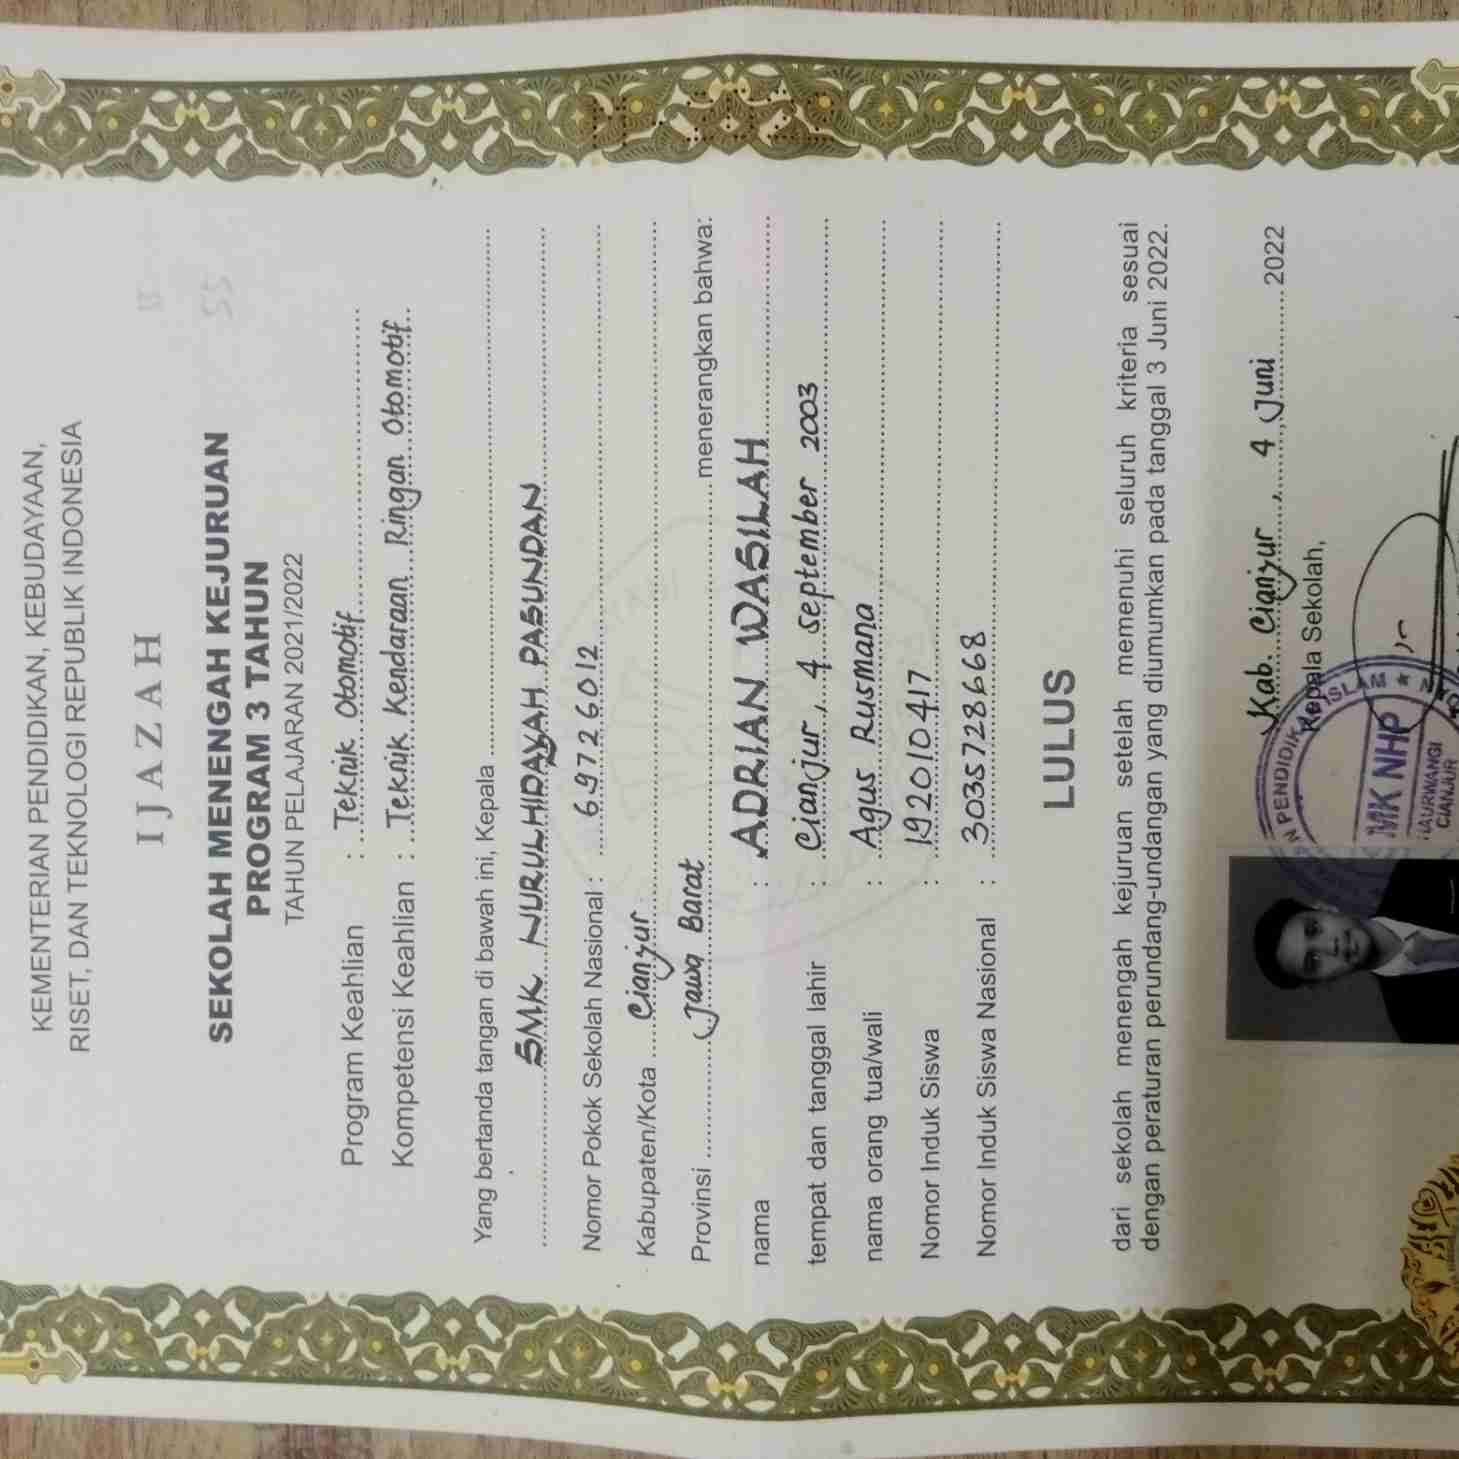 KEMENTERIAN PENDIDIKAN, KEBUDAYAAN,
RISET, DAN TEKNOLOGI REPUBLIK INDONESIA
IJAZAH
SEKOLAH MENENGAH KEJURUAN
PROGRAM 3 TAHUN
TAHUN PELAJARAN 2021/2022
Program Keahlian : Teknik Otomotif
Kompetensi Keahlian : Teknik Kendaraan Ringan Otomotif
Yang bertanda tangan di bawah ini, Kepala
SMK NURULHIDAYAH PASUNDAN
Nomor Pokok Sekolah Nasional : 69726012
Kabupaten/Kota Cianjur
Provinsi Jawa Barat menerangkan bahwa:
nama : ADRIAN WASILAH
tempat dan tanggal lahir : Cianjur, 4 September 2003
nama orang tua/wali : Agus Rusmana
Nomor Induk Siswa : 192010417
Nomor Induk Siswa Nasional : 3035728668
LULUS
dari sekolah menengah kejuruan setelah memenuhi seluruh kriteria sesuai
dengan peraturan perundang-undangan yang diumumkan pada tanggal 3 Juni 2022.
Kab. Cianjur, 4 Juni 2022
Kepala Sekolah,
PENDIDIKAN ISLAM
MK NHP
HAURWANGI
CIANJUR